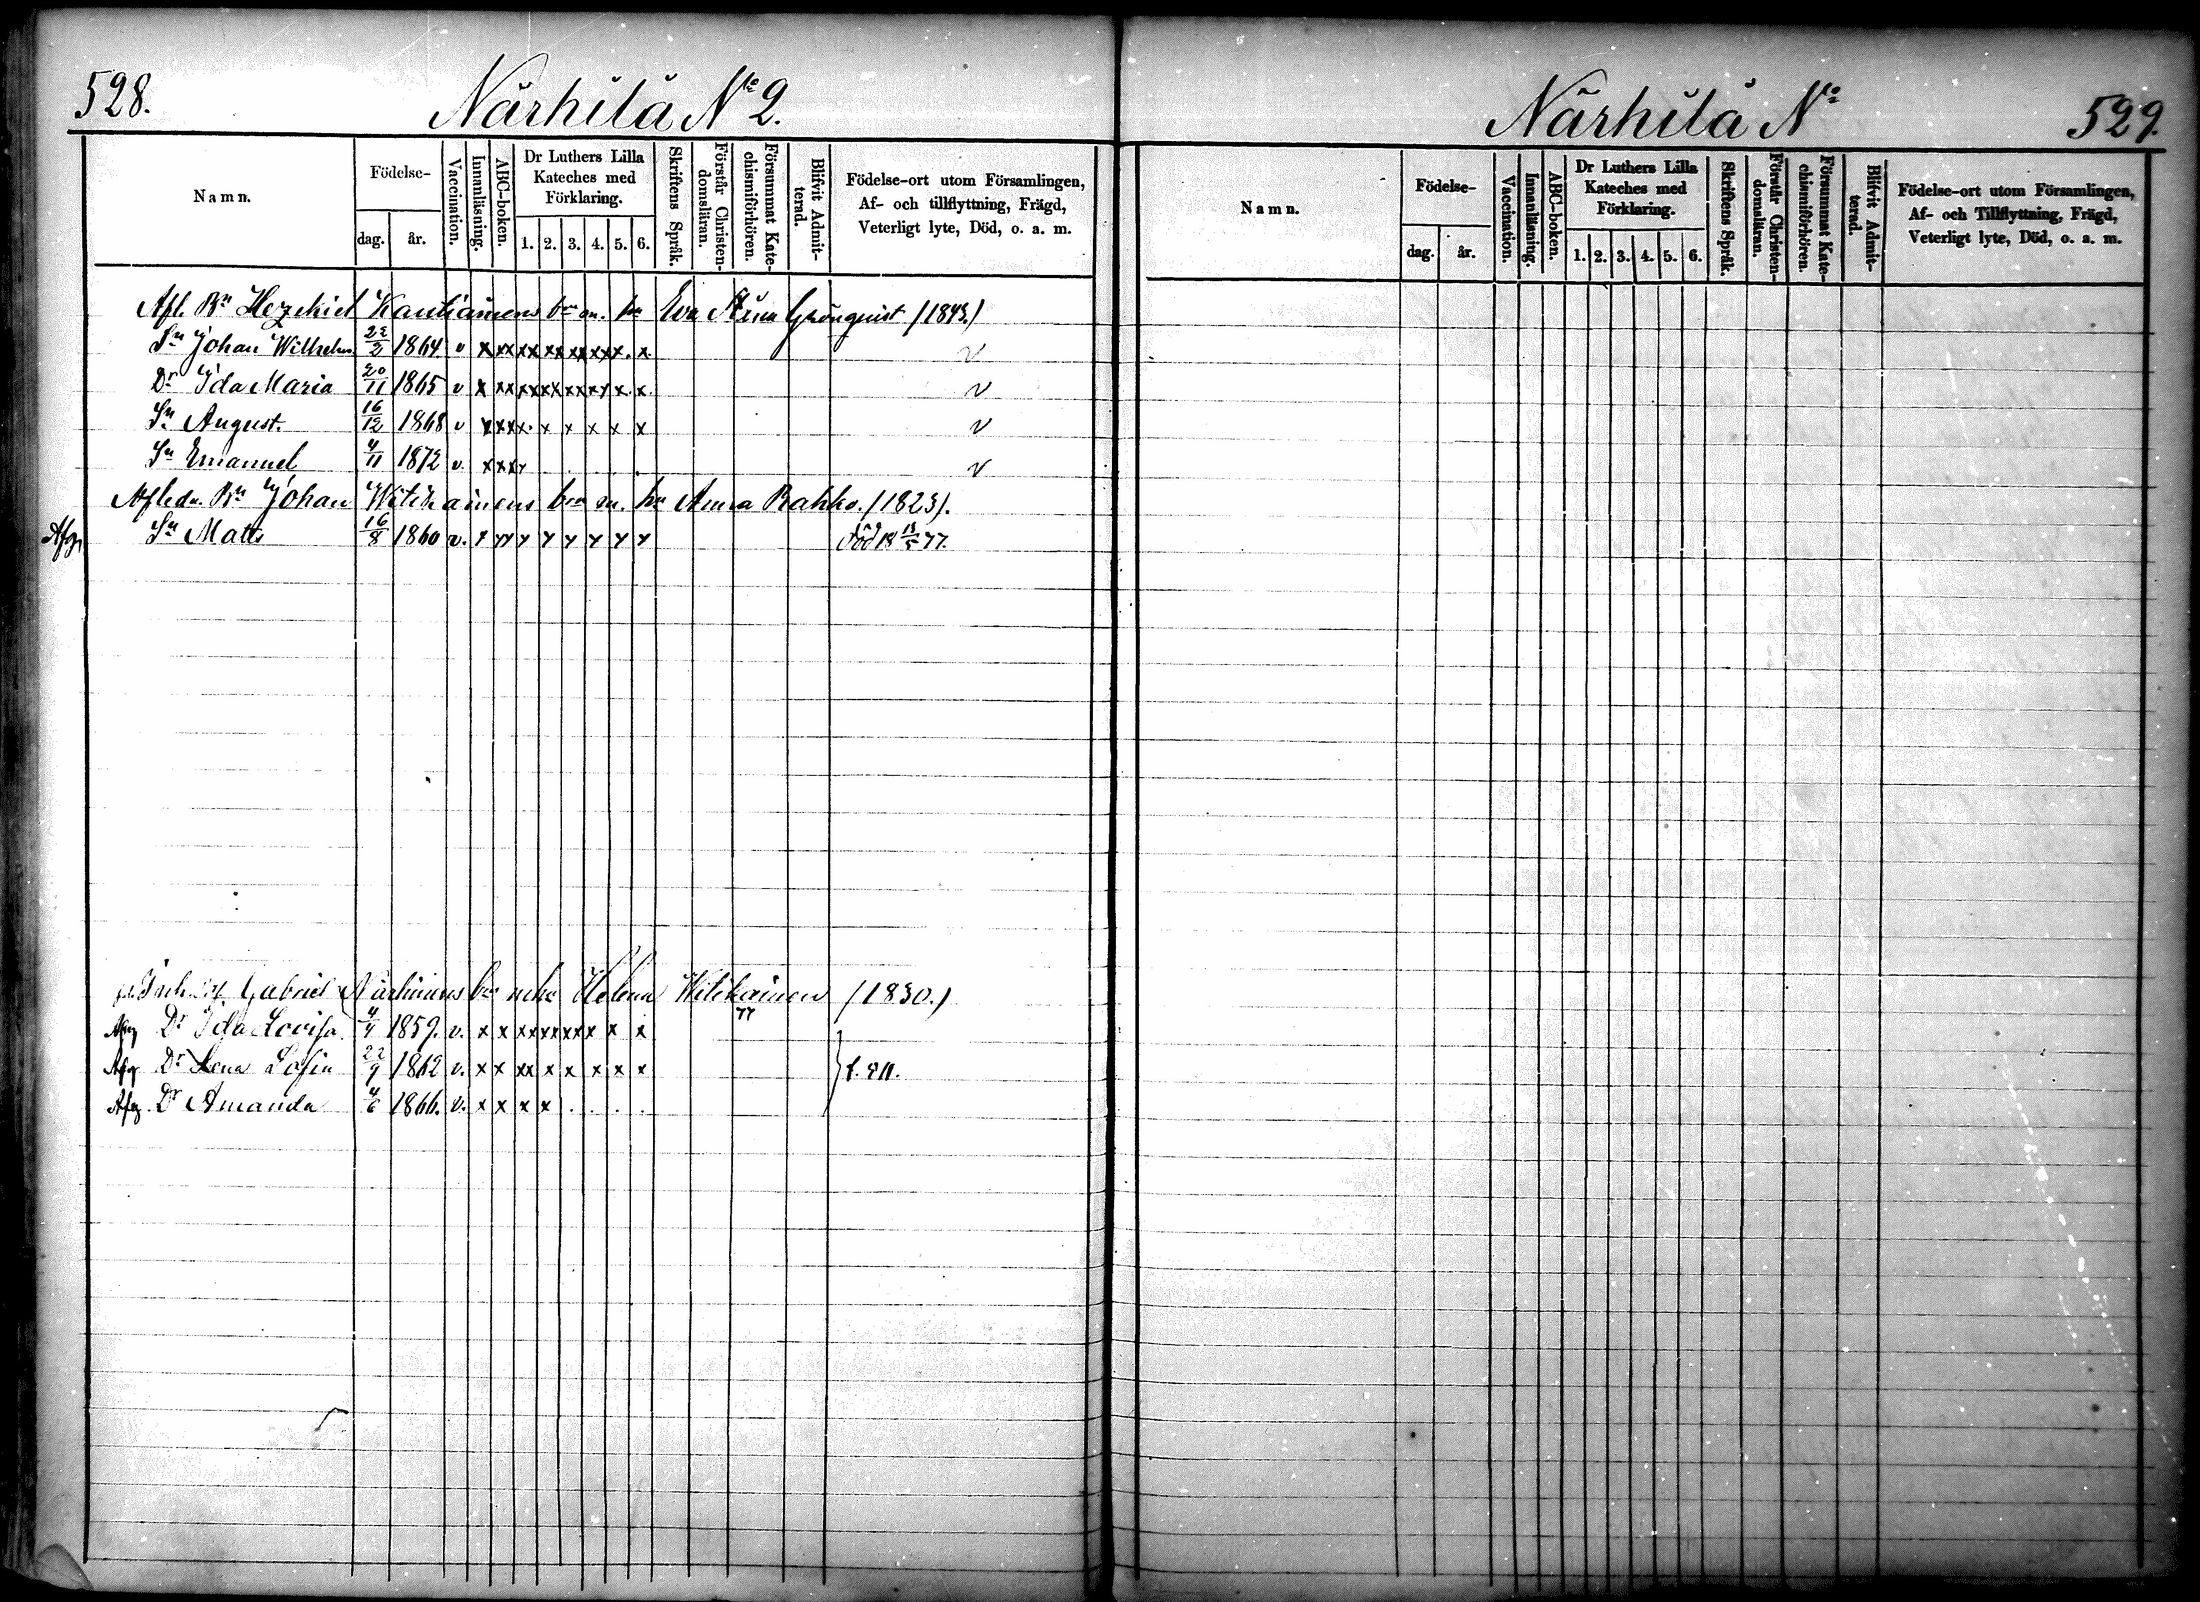 528.
Närhilä No 2.
Namn.
Födelse-
dag.
år.
Vaccination.
Innanläsning.
ABC-boken.
Dr Luthers Lilla
Kateches med
Förklaring.
1. 2. 3. 4. 5. 6.
Skriftens Språk.
Förstår Christen-
domsläran.
Försummat Kate-
chismiförhören.
Blifvit Admit-
terad.
Födelse-ort utom Församlingen,
Af- och tillflyttning, Frägd,
Veterligt lyte, Död, o. a. m.
Afl. Bn Hezekiel Kautiainens brn m. hu Eva Stina Grönquist (1843.)
Sn Johan Wilhelm 22/2 1864 v x xx xx xx xx xx x. x. v
Dr Ida Maria 20/11 1865 v x xx xx xx xx xx x. x. v
Sn August. 16/12 1868 v x xx x. x x x x x v
Sn Emanuel 4/11 1872 v. x xx x v
Afledn. Bn Johan Witikainens brn m. hu Anna Rahko. (1823).
Afg. Sn Matts 16/8 1860 v. x xx x x x x x x död 18 13/5 77.
Inh. Gabriel Närhinens brn m hu Helena Witikainen (1830.)
77
Afg Dr Ida Lovisa. 1859. v. x x xx xx xx x x x
Afg Dr Lena Sofia 22/9 1862 v. x x xx x x x x x
Afg. Dr Amanda 4/6 1866. v. x x x x . . . .
Närhilä No
529.
Namn.
Födelse-
dag.
år.
Vaccination.
Innanläsning.
ABC-boken.
Dr Luthers Lilla
Kateches med
Förklaring.
1. 2. 3. 4. 5. 6.
Skriftens Språk.
Förstår Christen-
domsläran.
Försummat Kate-
chismiförhören.
Blifvit Admit-
terad.
Födelse-ort utom Församlingen,
Af- och Tillflyttning, Frägd,
Veterligt lyte, Död, o. a. m.